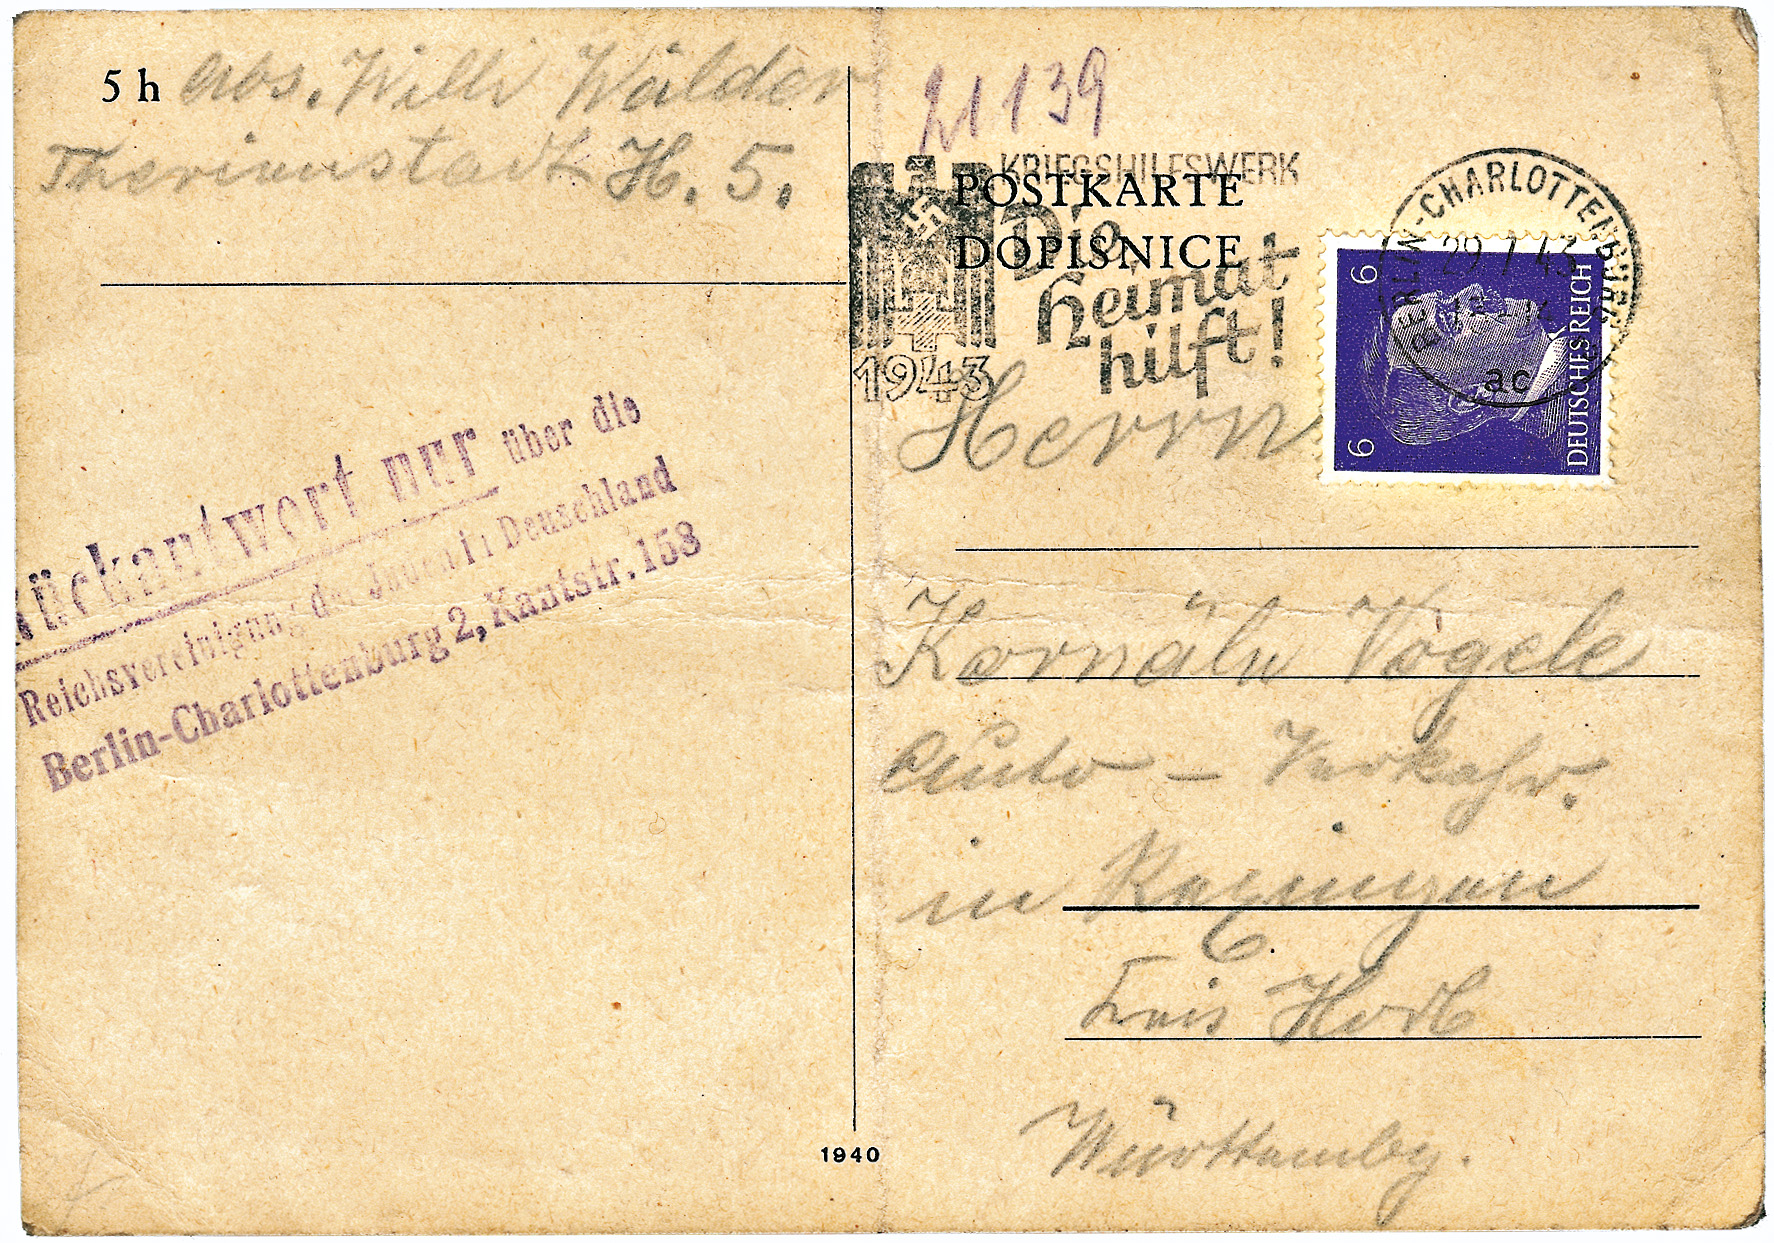 5 h Abs. Willi Wälder
Theriinstadt H. 5.
21139
KRIEGSHILFSWERK
POSTKARTE
DOPISNICE
Die
Heimat
hilft!
1943
BERLIN-CHARLOTTENBURG
29.1.43
ac
6
6
DEUTSCHES REICH
Rückantwort nur über die
Reichsvereinigung der Juden in Deuschland
Berlin-Charlottenburg 2, Kantstr. 158
Herrn
Kornäln Vögele
Auto – Verkehr.
in
Kreis Horb
Württembg.
1940